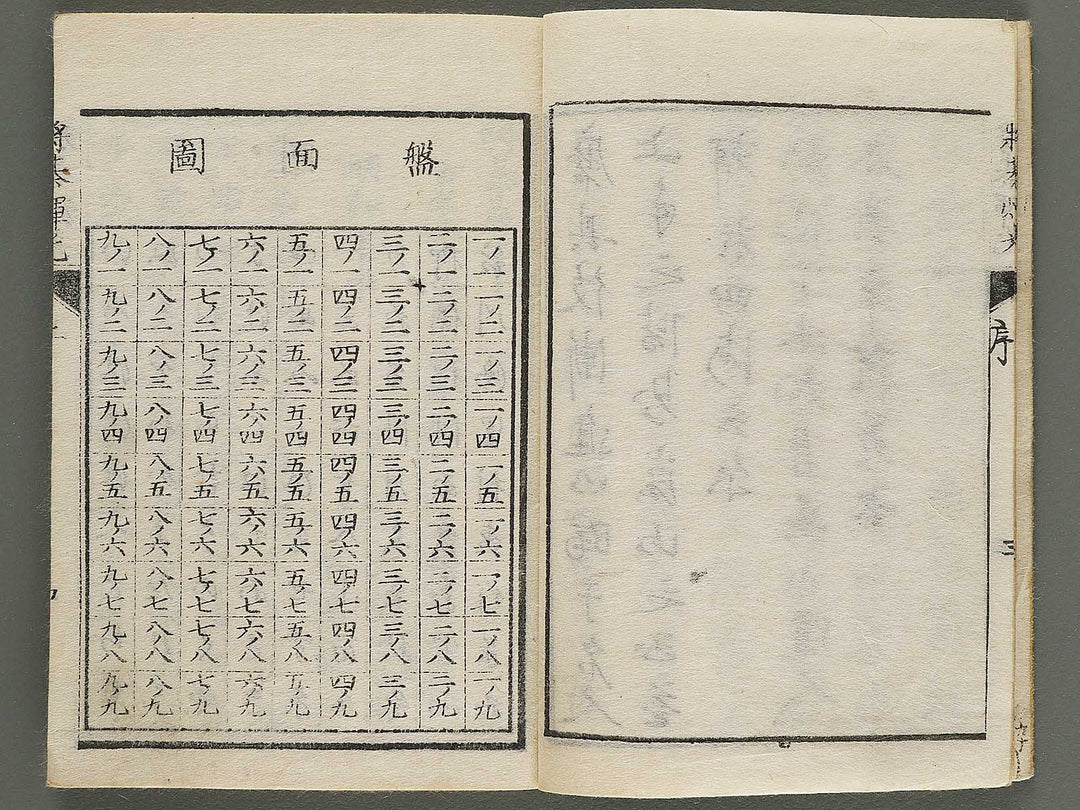 序
三
盤面圖
一ノ一 一ノ二 一ノ三 一ノ四 一ノ五 一ノ六 一ノ七 一ノ八 一ノ九
二ノ一 二ノ二 二ノ三 二ノ四 二ノ五 二ノ六 二ノ七 二ノ八 二ノ九
三ノ一 三ノ二 三ノ三 三ノ四 三ノ五 三ノ六 三ノ七 三ノ八 三ノ九
四ノ一 四ノ二 四ノ三 四ノ四 四ノ五 四ノ六 四ノ七 四ノ八 四ノ九
五ノ一 五ノ二 五ノ三 五ノ四 五ノ五 五ノ六 五ノ七 五ノ八 五ノ九
六ノ一 六ノ二 六ノ三 六ノ四 六ノ五 六ノ六 六ノ七 六ノ八 六ノ九
七ノ一 七ノ二 七ノ三 七ノ四 七ノ五 七ノ六 七ノ七 七ノ八 七ノ九
八ノ一 八ノ二 八ノ三 八ノ四 八ノ五 八ノ六 八ノ七 八ノ八 八ノ九
九ノ一 九ノ二 九ノ三 九ノ四 九ノ五 九ノ六 九ノ七 九ノ八 九ノ九